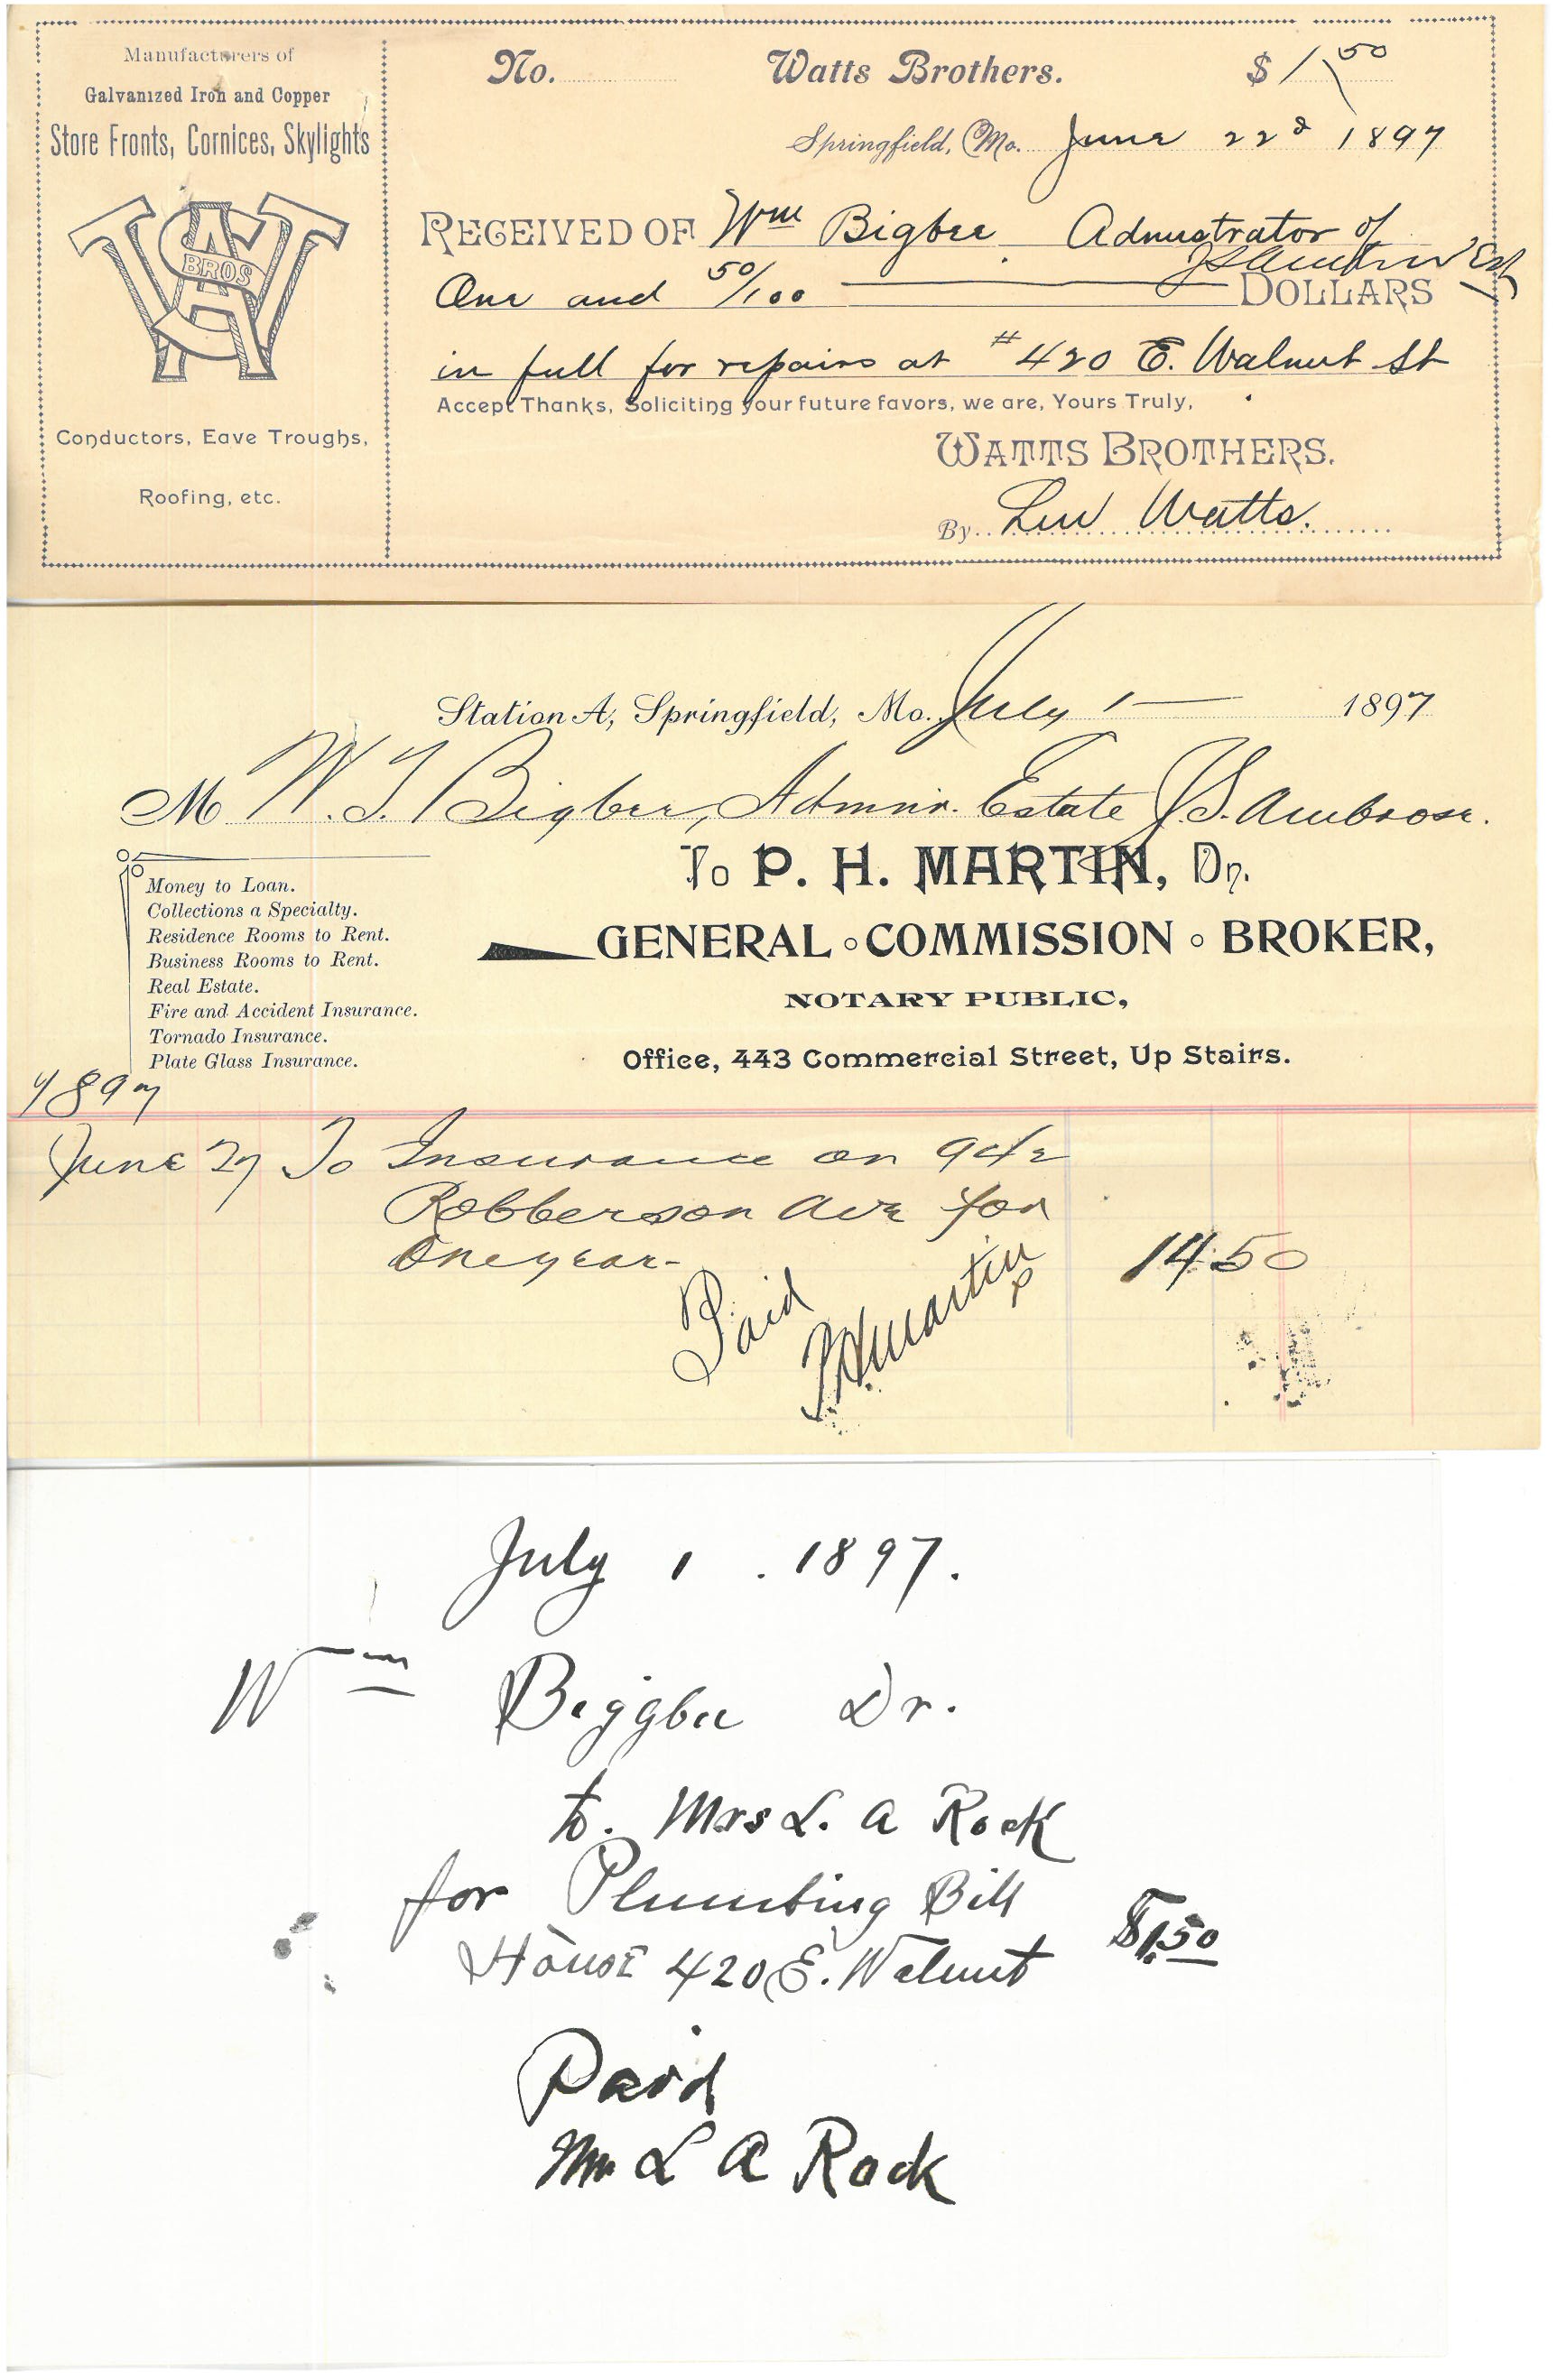 Manufacturers of
Galvanized Iron and Copper
Store Fronts, Cornices, Skylights
WATTS
BROS
Conductors, Eave Troughs,
Roofing, etc.
No. Watts Brothers. $ 1 50
Springfield, Mo. June 22d 1897
RECEIVED OF Wm Bigbee Admistrator of
One and 50/100 DOLLARS
in full for repairs at #420 E. Walnut St
Accept Thanks, Soliciting your future favors, we are, Yours Truly,
WATTS BROTHERS.
By Watts.
Station A, Springfield, Mo. July 1 1897
M W. T. Bigbee, Admnr. Estate J. S. Ambrose.
To P. H. MARTIN, Dr.
GENERAL COMMISSION BROKER,
NOTARY PUBLIC,
Office, 443 Commercial Street, Up Stairs.
Money to Loan.
Collections a Specialty.
Residence Rooms to Rent.
Business Rooms to Rent.
Real Estate.
Fire and Accident Insurance.
Tornado Insurance.
Plate Glass Insurance.
1897
June 27 To Insurance on
Robberson Ave for
One year- 14.50
Paid
P H Martin
July 1. 1897.
Wm Biggbee Dr.
to. Mrs L. A Rock
for Plumbing Bill
House 420 E. Walnut $1.50
Paid
Mrs L A Rock